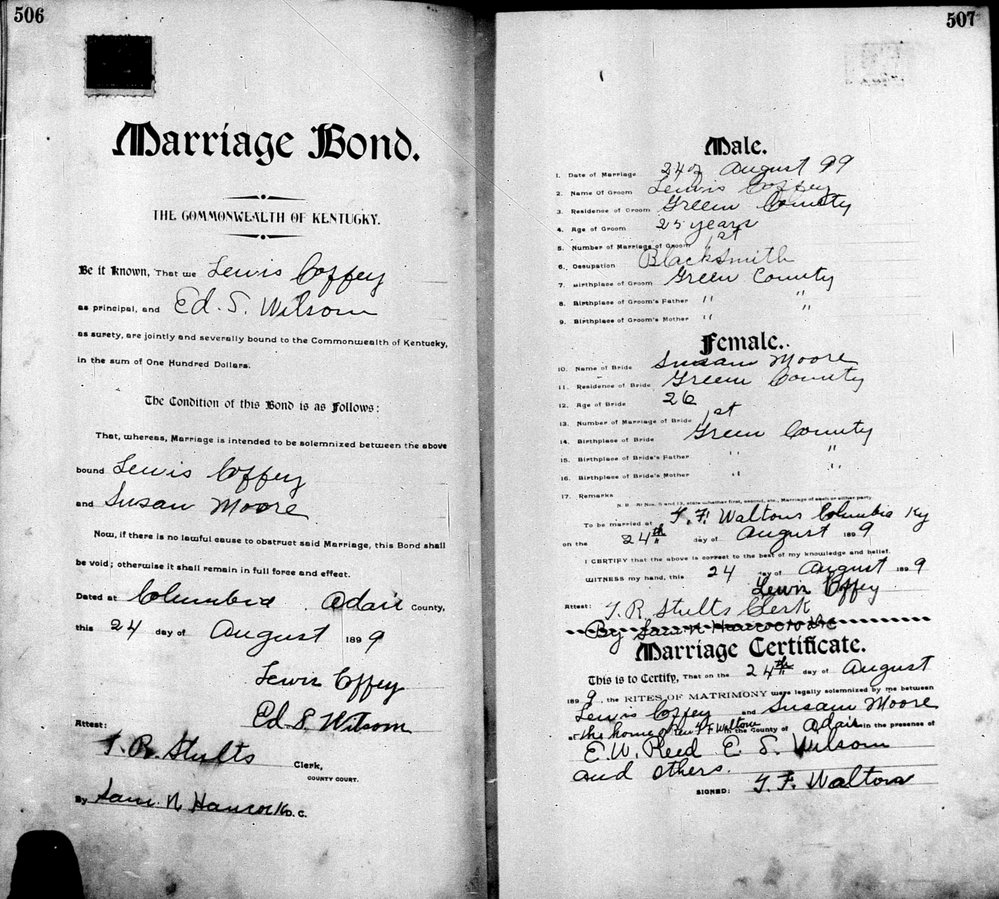 506
Marriage Bond.
THE COMMONWEALTH OF KENTUCKY.
Be it known, That we Lewis Coffey
as principal, and Ed. S. Wilson
as surety, are jointly and severally bound to the Commonwealth of Kentucky,
in the sum of One Hundred Dollars.
The Condition of this Bond is as Follows:
That, whereas, Marriage is intended to be solemnized between the above
bound Lewis Coffey
and Susan Moore
Now, if there is no lawful cause to obstruct said Marriage, this Bond shall
be void; otherwise it shall remain in full force and effect.
Dated at Columbia Adair County,
this 24 day of August 1899
Lewis Coffey
Ed S. Wilson
Attest:
T. R. Stults Clerk,
COUNTY COURT.
By Sam. N Hancock D. C.
507
Male.
1. Date of Marriage 24 August 99
2. Name Of Groom Lewis Coffey
3. Residence of Groom Green County
4. Age of Groom 25 years
5. Number of Marriage of Groom 1st
6. Occupation BlackSmith
7. Birthplace of Groom Green County
8. Birthplace of Groom's Father " "
9. Birthplace of Groom's Mother " "
Female.
10. Name of Bride Susan Moore
11. Residence of Bride Green County
12. Age of Bride 26
13. Number of Marriage of Bride 1st
14. Birthplace of Bride Green County
15. Birthplace of Bride's Father " "
16. Birthplace of Bride's Mother " "
17. Remarks
N. B. At Nos. 5 and 13, state whether first, second, etc., Marriage of each or either party.
To be married at T. F. Waltons Columbia Ky
on the 24th day of August 1899
I CERTIFY that the above is correct to the best of my knowledge and belief.
WITNESS my hand, this 24 day of August 1899
Lewis Coffey
Attest: T. R. Stults Clerk
By Sam N Hancock DC
Marriage Certificate.
This is to Certify, That on the 24th day of August
1899, the RITES OF MATRIMONY were legally solemnized by me between
Lewis Coffey and Susan Moore
at the home of T F Walton in the County of Adair in the presence of
E. W. Reed E. S. Wilson
and others.
SIGNED: T. F. Walton